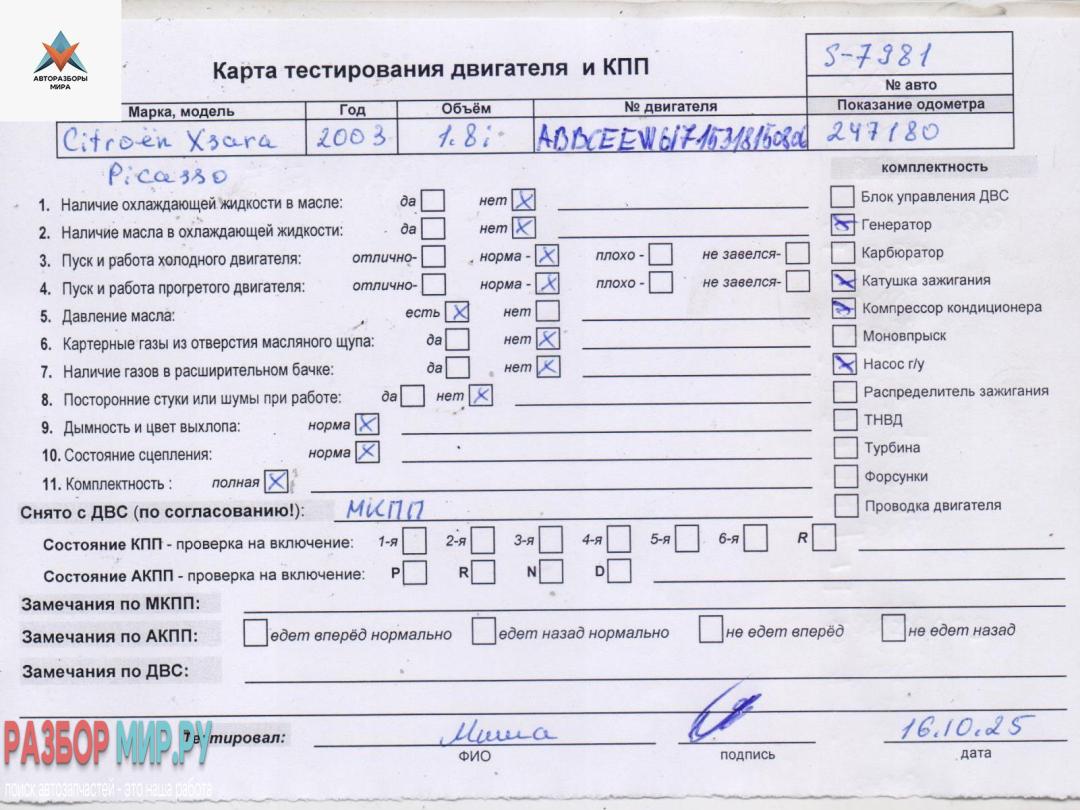 АВТОРАЗБОРЫ
МИРА
Карта тестирования двигателя и КПП
S-7981
№ авто
Марка, модель Год Объём № двигателя Показание одометра
Citroën Xsara 2003 1.8i 247180
Picasso
комплектность
1. Наличие охлаждающей жидкости в масле: да нет
Блок управления ДВС
2. Наличие масла в охлаждающей жидкости: да нет
Генератор
3. Пуск и работа холодного двигателя: отлично- норма - плохо - не завелся-
Карбюратор
4. Пуск и работа прогретого двигателя: отлично- норма - плохо - не завелся-
Катушка зажигания
5. Давление масла: есть нет
Компрессор кондиционера
6. Картерные газы из отверстия масляного щупа: да нет
Моновпрыск
7. Наличие газов в расширительном бачке: да нет
Насос г/у
8. Посторонние стуки или шумы при работе: да нет
Распределитель зажигания
9. Дымность и цвет выхлопа: норма
ТНВД
10. Состояние сцепления: норма
Турбина
11. Комплектность : полная
Форсунки
Снято с ДВС (по согласованию!): МКПП
Проводка двигателя
Состояние КПП - проверка на включение: 1-я 2-я 3-я 4-я 5-я 6-я R
Состояние АКПП - проверка на включение: P R N D
Замечания по МКПП:
Замечания по АКПП: едет вперёд нормально едет назад нормально не едет вперёд не едет назад
Замечания по ДВС:
РАЗБОР МИР.РУ
Тестировал: Миша 16.10.25
ФИО подпись дата
поиск автозапчастей - это наша работа